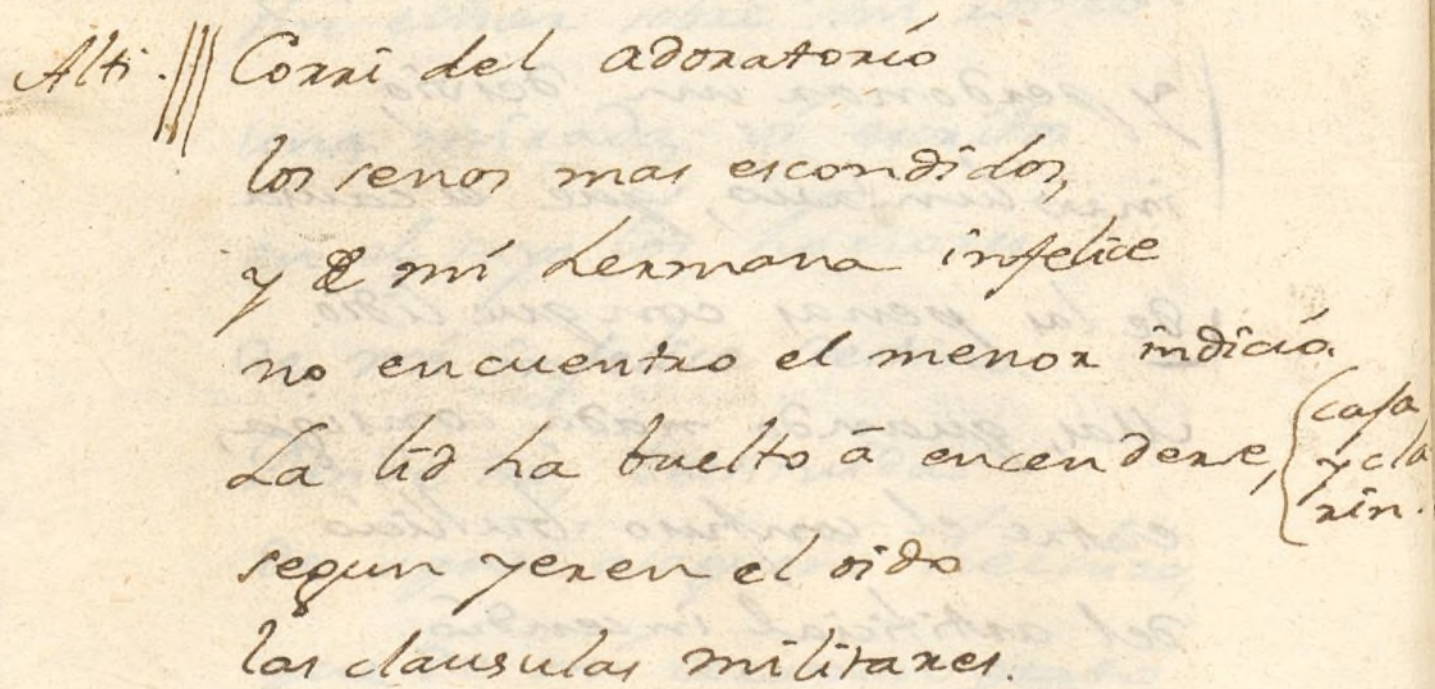 Alti. Corri del adoratorio
los senos mas escondidos,
y de mi hermana infelice
no encuentro el menor indicio.
La lid ha buelto á encenderse,
(caja
y cla
rin.
segun yeren el oido
las clausulas militares.